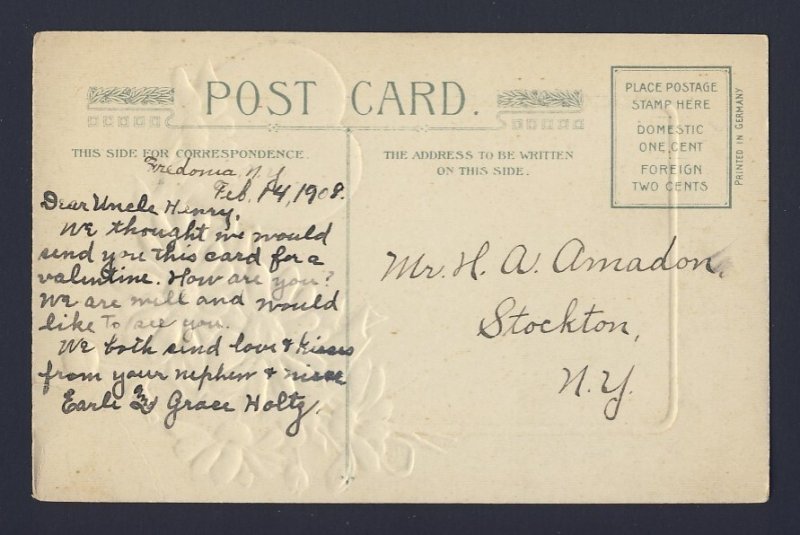 POST CARD.
THIS SIDE FOR CORRESPONDENCE.
THE ADDRESS TO BE WRITTEN
ON THIS SIDE.
PLACE POSTAGE
STAMP HERE
DOMESTIC
ONE CENT
FOREIGN
TWO CENTS
PRINTED IN GERMANY
Fredonia, N.Y.
Feb. 14, 1908.
Dear Uncle Henry,
We thought we would
send you this card for a
valentine. How are you?
We are well and would
like to see you.
We both send love & kisses
from your nephew & niece
Earle & Grace Holtz.
Mr. H. A. Amadon,
Stockton,
N.Y.